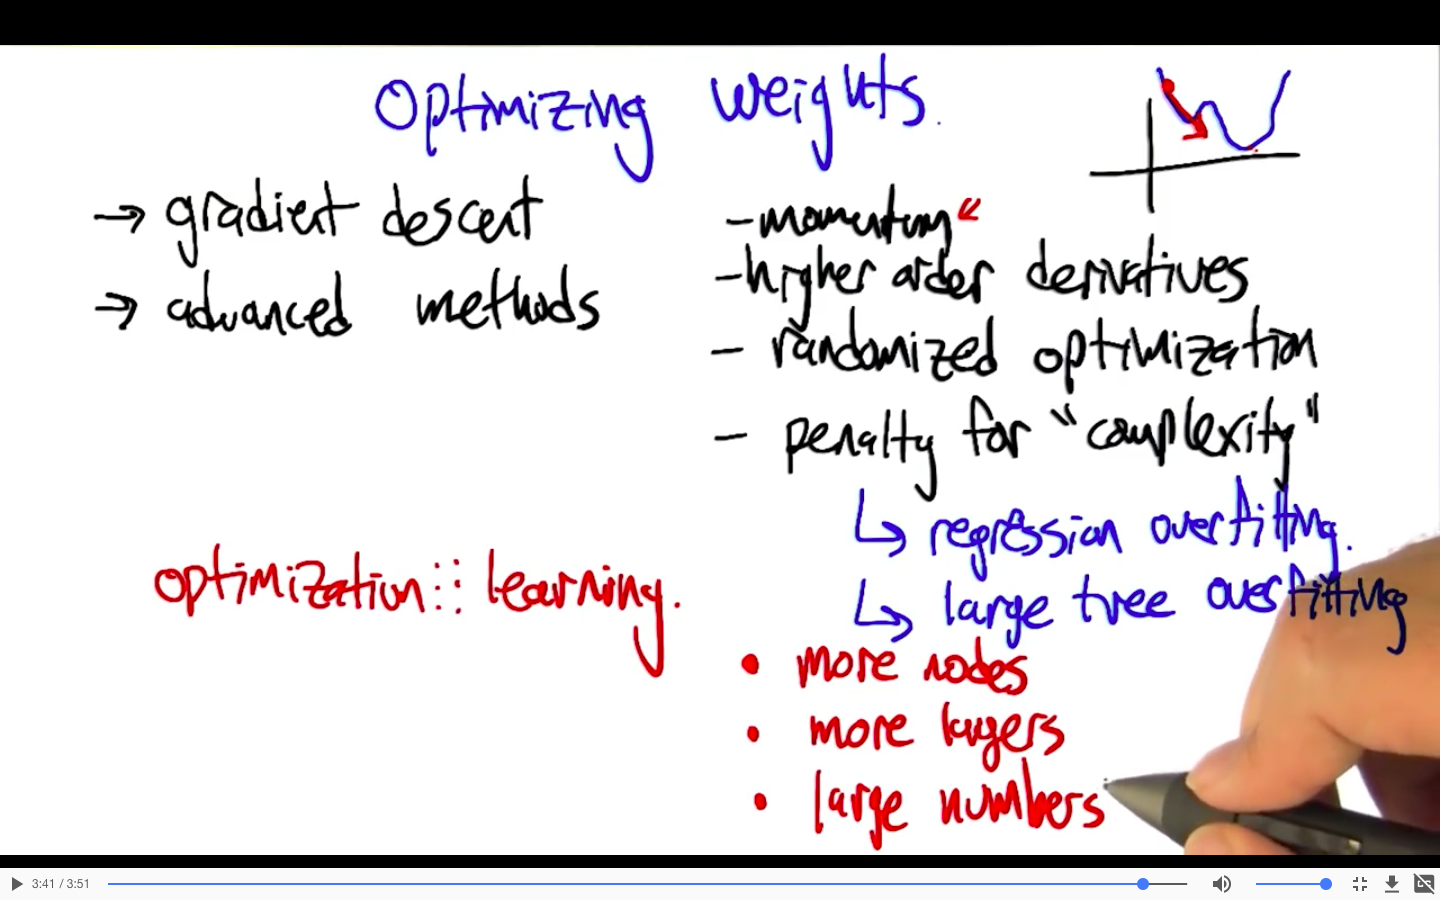 Optimizing weights.
→ gradient descent
→ advanced methods
optimization ::: learning.
- momentum
- higher order derivatives
- randomized optimization
- penalty for "complexity"
↳ regression overfitting.
↳ large tree overfitting
• more nodes
• more layers
• large numbers
3:41 / 3:51